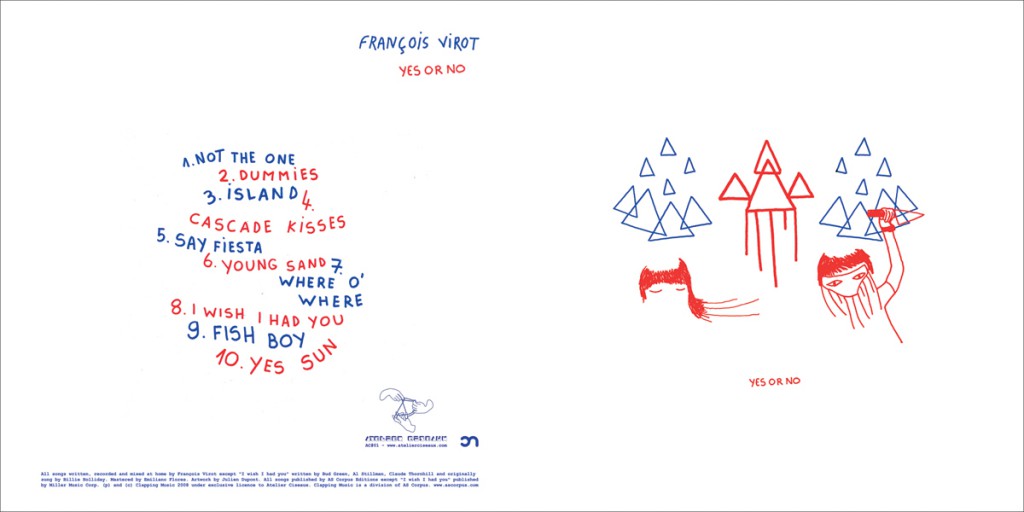 FRANÇOIS VIROT
YES OR NO
1. NOT THE ONE
2. DUMMIES
3. ISLAND 4.
CASCADE KISSES
5. SAY FIESTA
6. YOUNG SAND 7.
WHERE O'
WHERE
8. I WISH I HAD YOU
9. FISH BOY
10. YES SUN
YES OR NO
ATELIER CISEAUX
AC#01 - www.atelierciseaux.com
All songs written, recorded and mixed at home by François Virot except "I wish I had you" written by Bud Green, Al Stillman, Claude Thornhill and originally
sung by Billie Holliday. Mastered by Emiliano Flores. Artwork by Julien Dupont. All songs published by AS Corpus Editions except "I wish I had you" published
by Miller Music Corp. (p) and (c) Clapping Music 2008 under exclusive licence to Atelier Ciseaux. Clapping Music is a division of AS Corpus. www.ascorpus.com